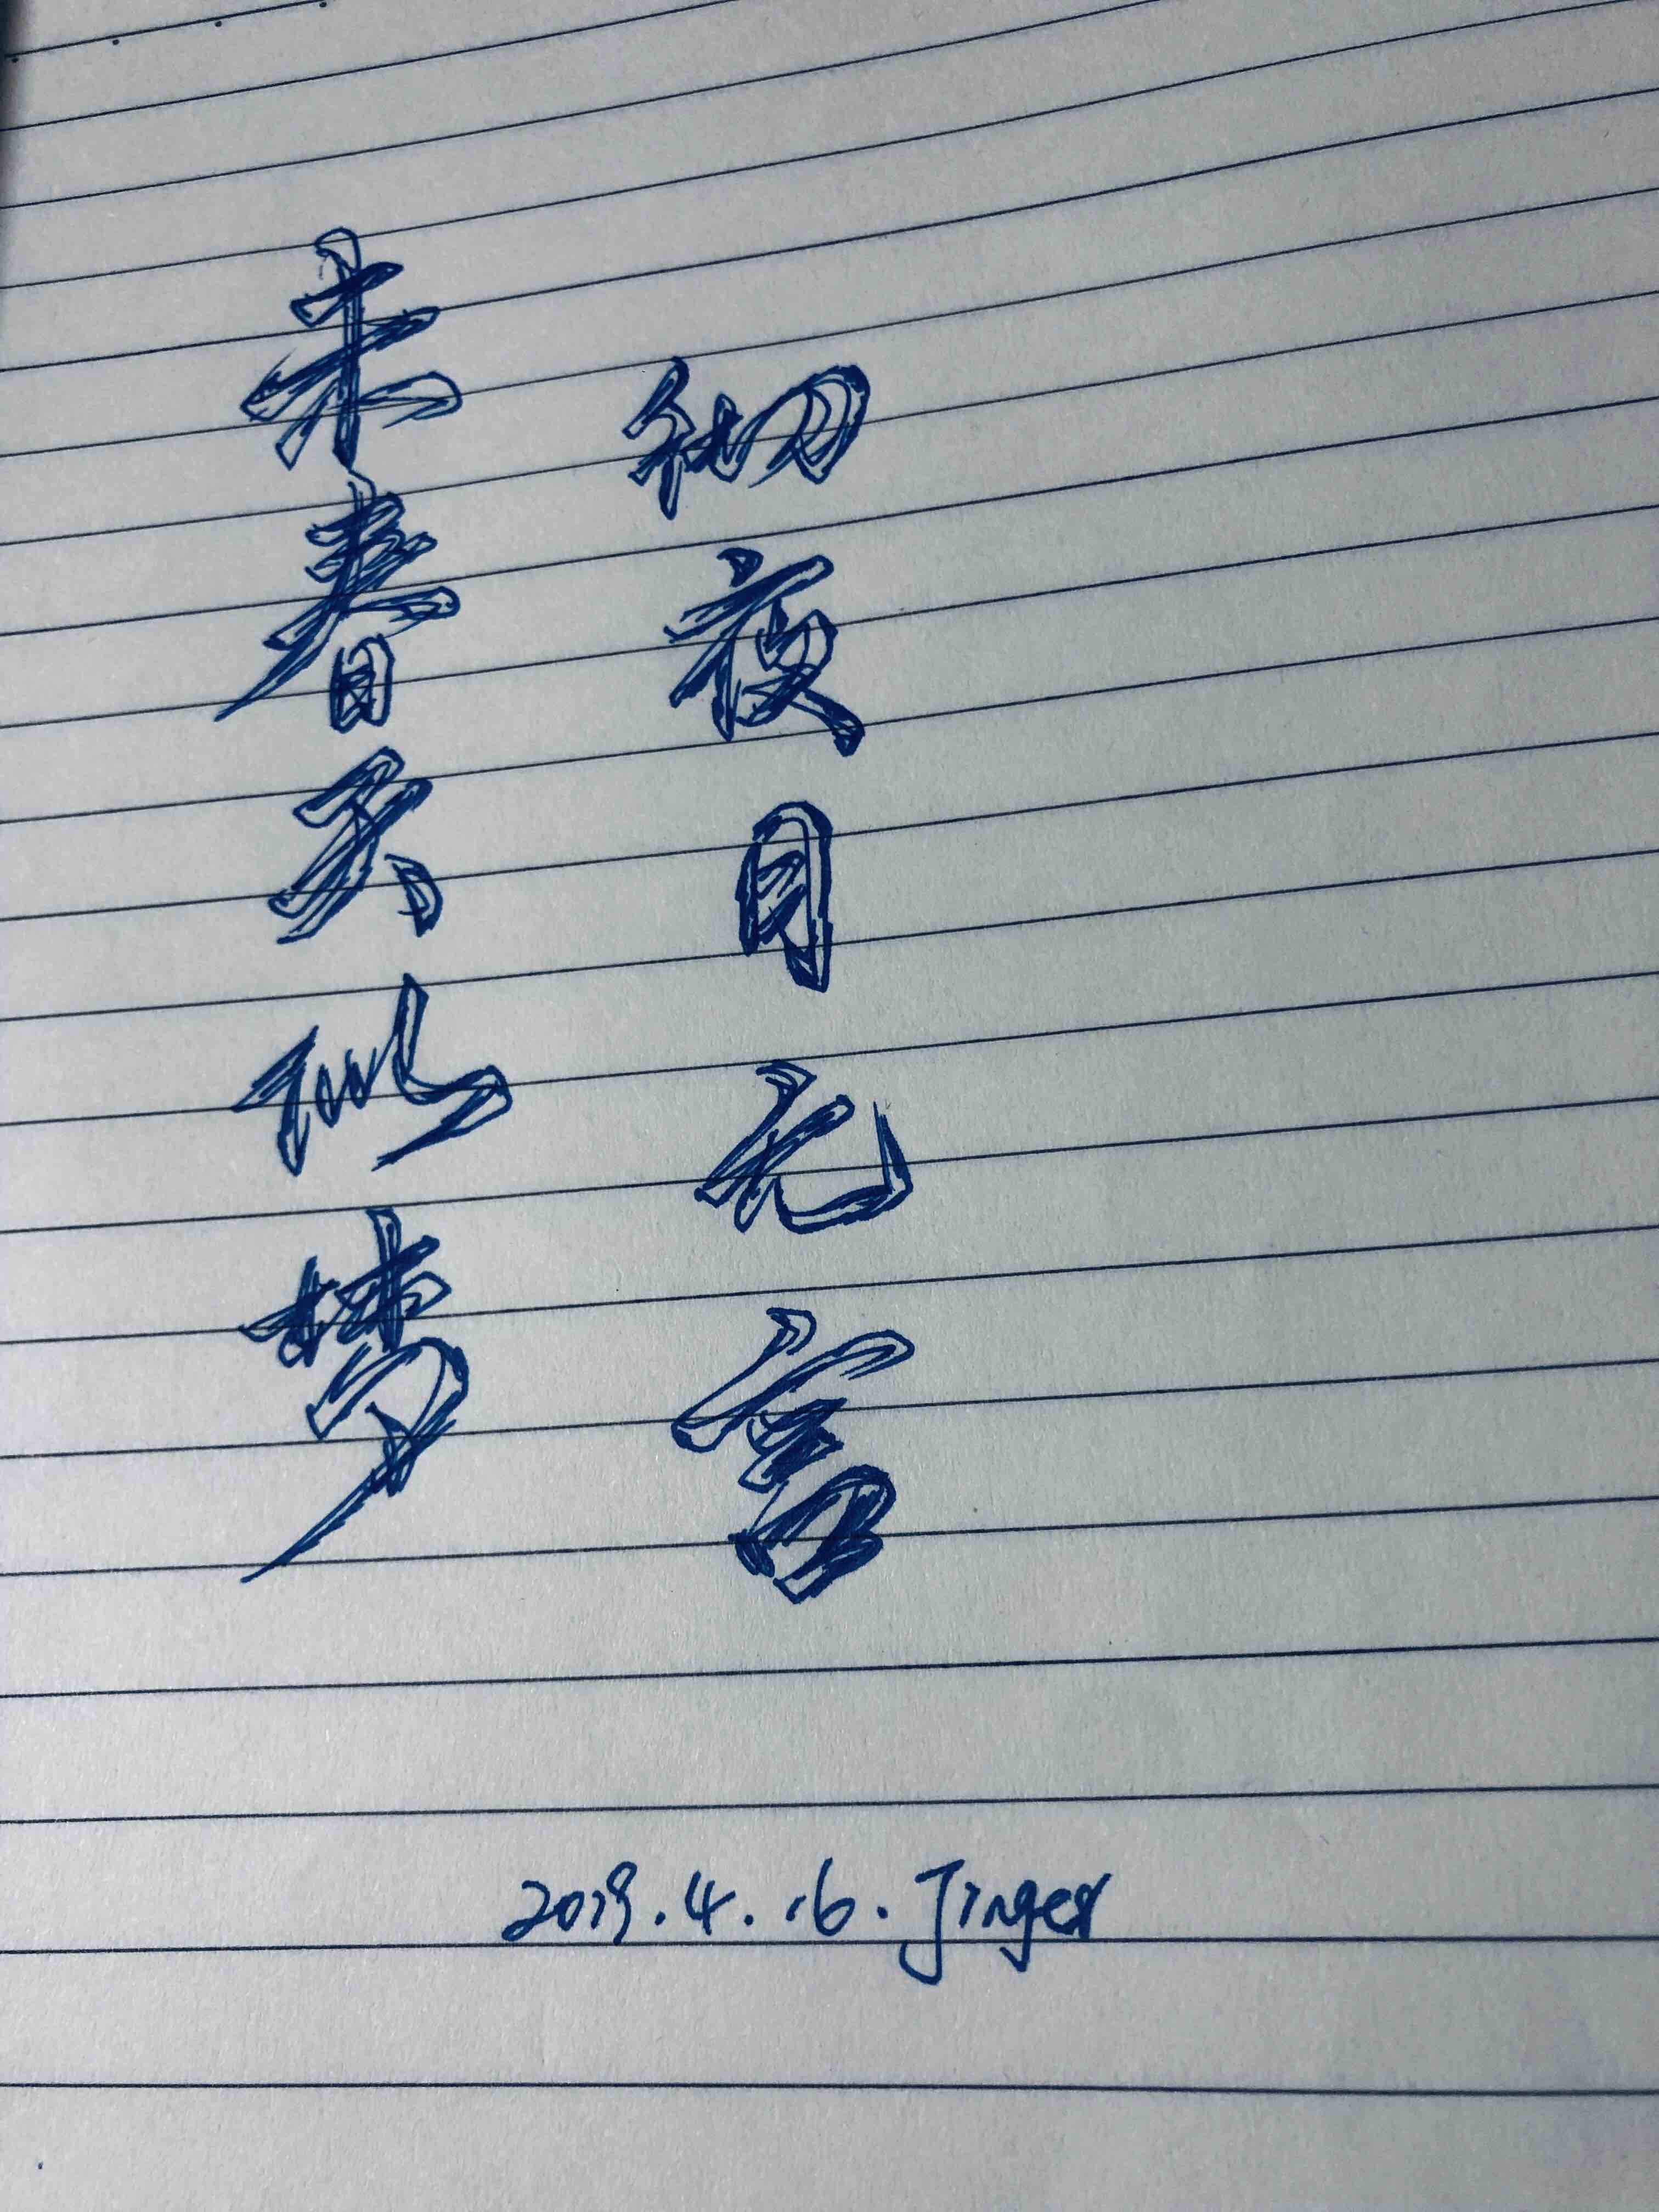 初夜月
未春天似梦
2019.4.16.Jinger